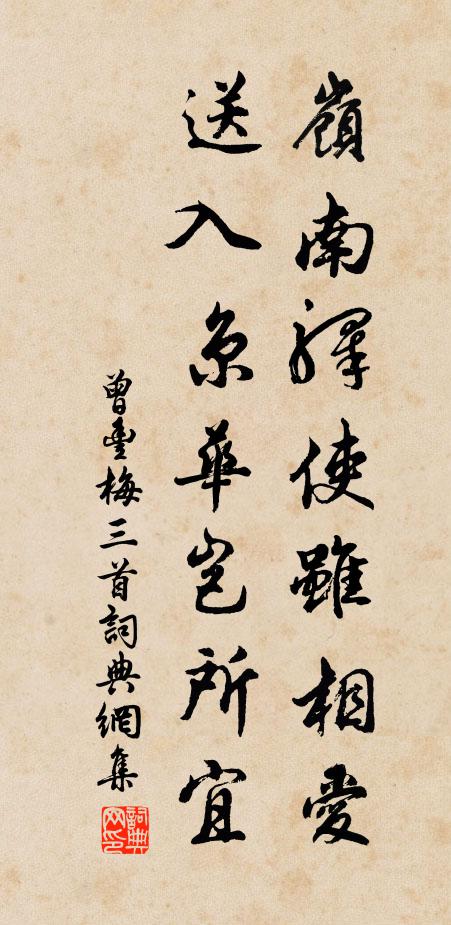 嶺南驛使雖相愛
送入京華豈所宜
曾豐梅三首詞典網集
詞典網印